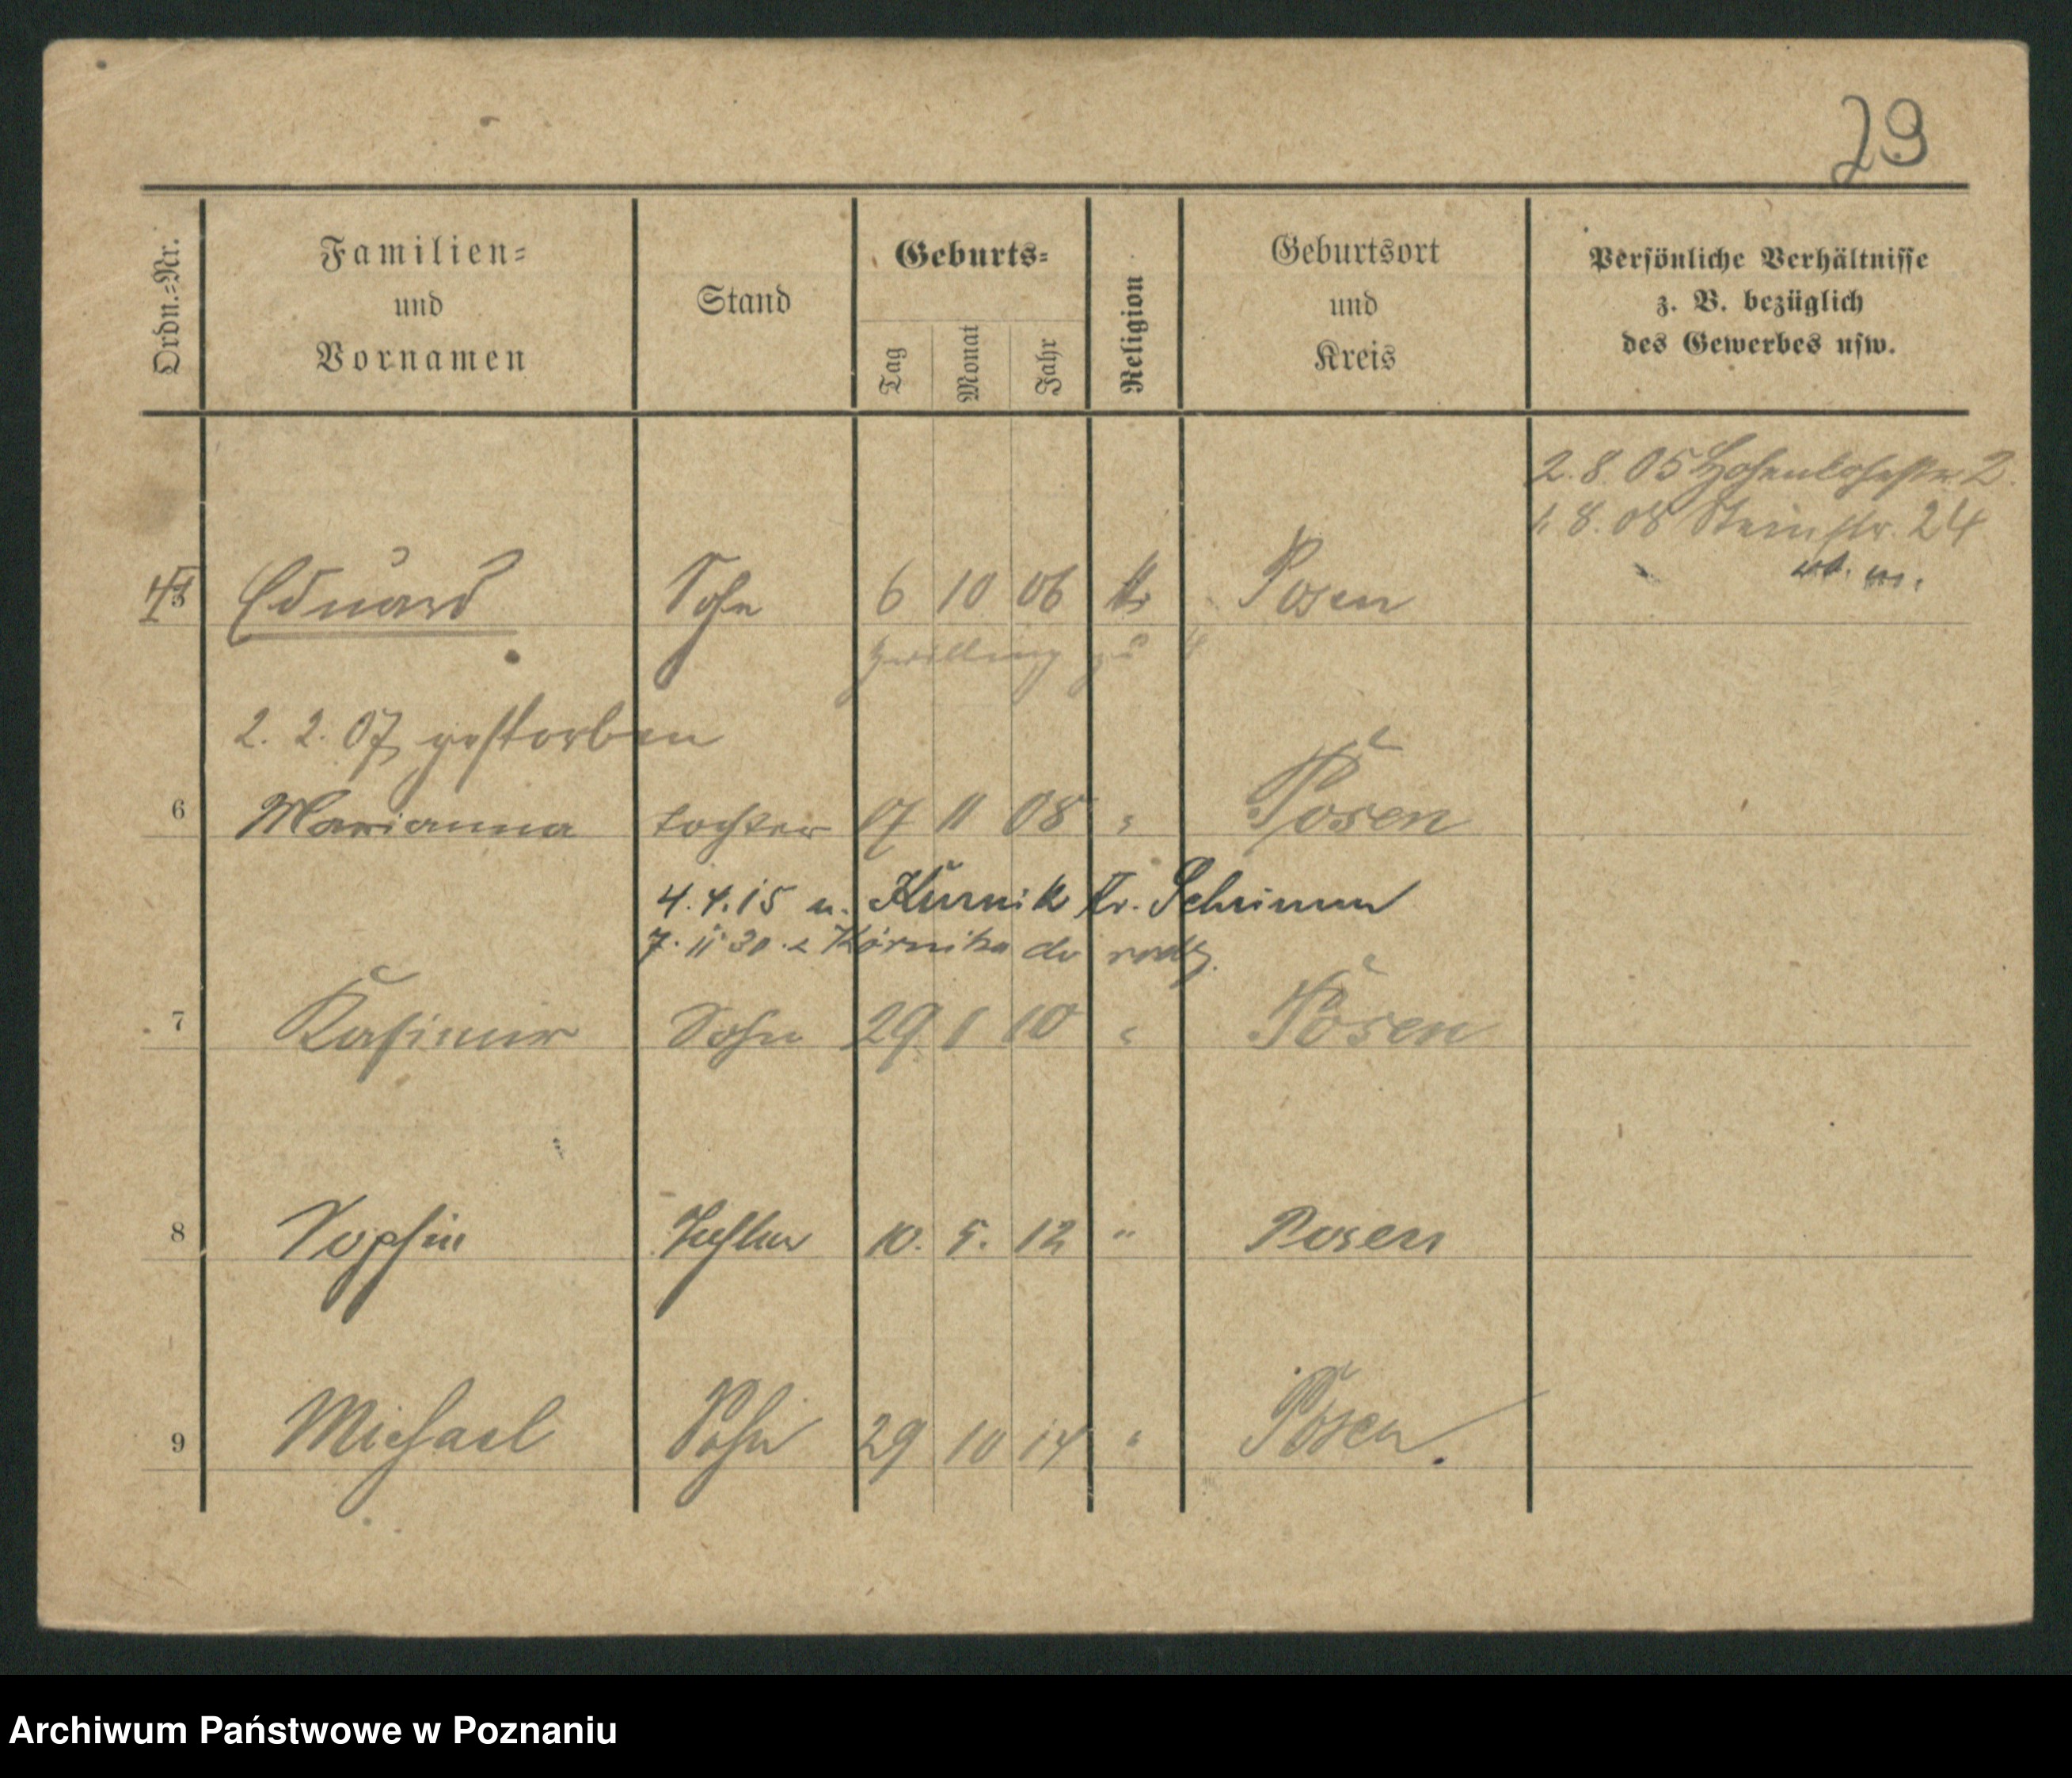 29
Ordn.-Nr.
Familien-
und
Vornamen
Stand
Geburts-
Tag
Monat
Jahr
Religion
Geburtsort
und
Kreis
Persönliche Verhältnisse
z. B. bezüglich
des Gewerbes usw.
2. 8 05 Hohenlohestr. 2.
1. 8. 08 Steinstr. 24
Eduard Sohn 6 10 06 Posen
Zwilling zu 4
2. 2. 07 gestorben
6 Marianna tochter 17 11 08 " Posen
4. 4. 15 n. Kurnik Kr. Schrimm
7. 11 30. z Kórnika do rodz.
7 Kasimir Sohn 29 1 10 " Posen
8 Sophie Tochter 10. 5. 12 " Posen
9 Michael Sohn 29 10 14 " Posen.
Archiwum Państwowe w Poznaniu